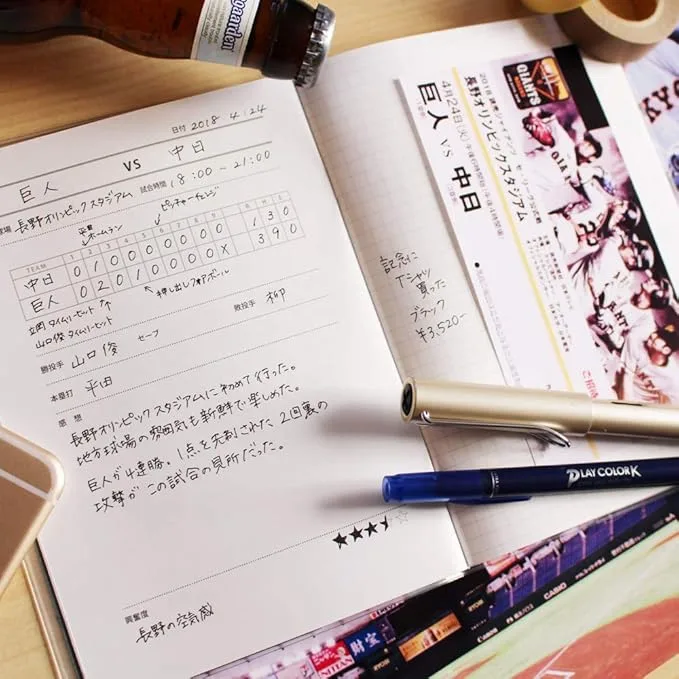 Hoegaarden
日付 2018 4/24
巨人 VS 中日
球場 長野オリンピックスタジアム 試合時間 18:00~21:00
ピッチャーチェンジ
ホームラン
TEAM 1 2 3 4 5 6 7 8 9 R H E
中日 0 1 0 0 0 0 0 0 0 1 3 0
巨人 0 2 0 1 0 0 0 0 X 3 9 0
押し出しフォアボール
立岡 タイムリーヒット
山口俊 タイムリーヒット
勝投手 山口俊 セーブ 敗投手 柳
本塁打 平田
感想
長野オリンピックスタジアムに初めて行った。
地方球場の雰囲気も新鮮で楽しめた。
巨人が4連勝。1点を先制された2回裏の
攻撃がこの試合の見所だった。
★★★★☆
興奮度
長野の空気感
記念に
Tシャツ
買った
ブラック
¥3,520-
GIANTS
長野オリンピックスタジアム
4月24日(火)
巨人 VS 中日
PLAYCOLOR K
CASIO
Canon
RYOBI